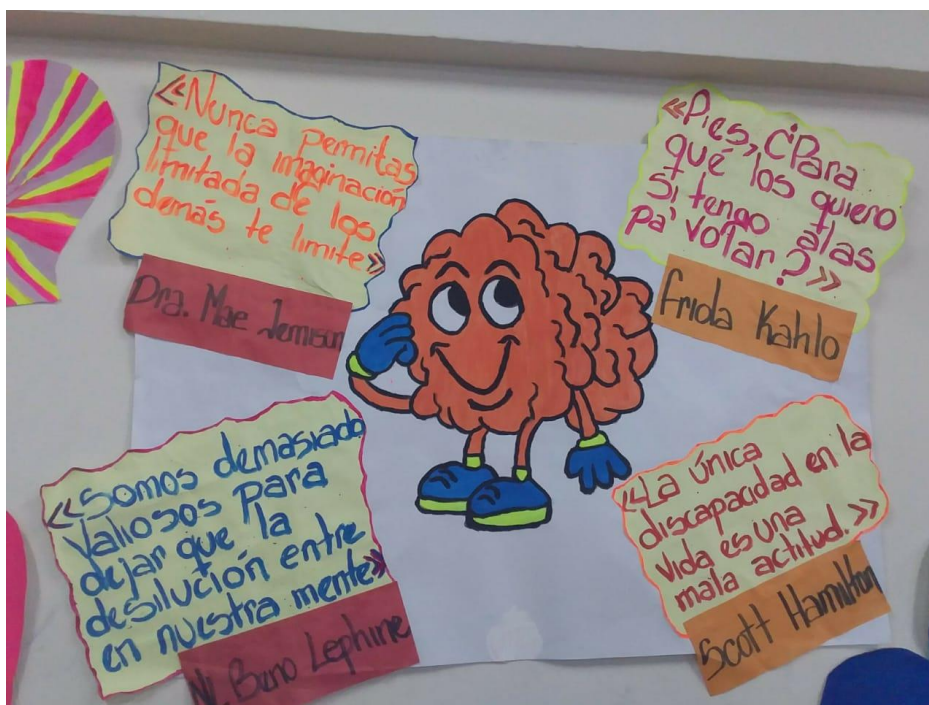 «Nunca permitas
que la imaginación
limitada de los
demás te limite»
Dra. Mae Jemison
«Pies, ¿Para
qué los quiero
si tengo alas
pa' volar?»
Frida Kahlo
«Somos demasiado
valiosos para
dejar que la
desilución entre
en nuestra mente»
Beno Lephine
«La única
discapacidad en la
vida es una
mala actitud.»
Scott Hamilton